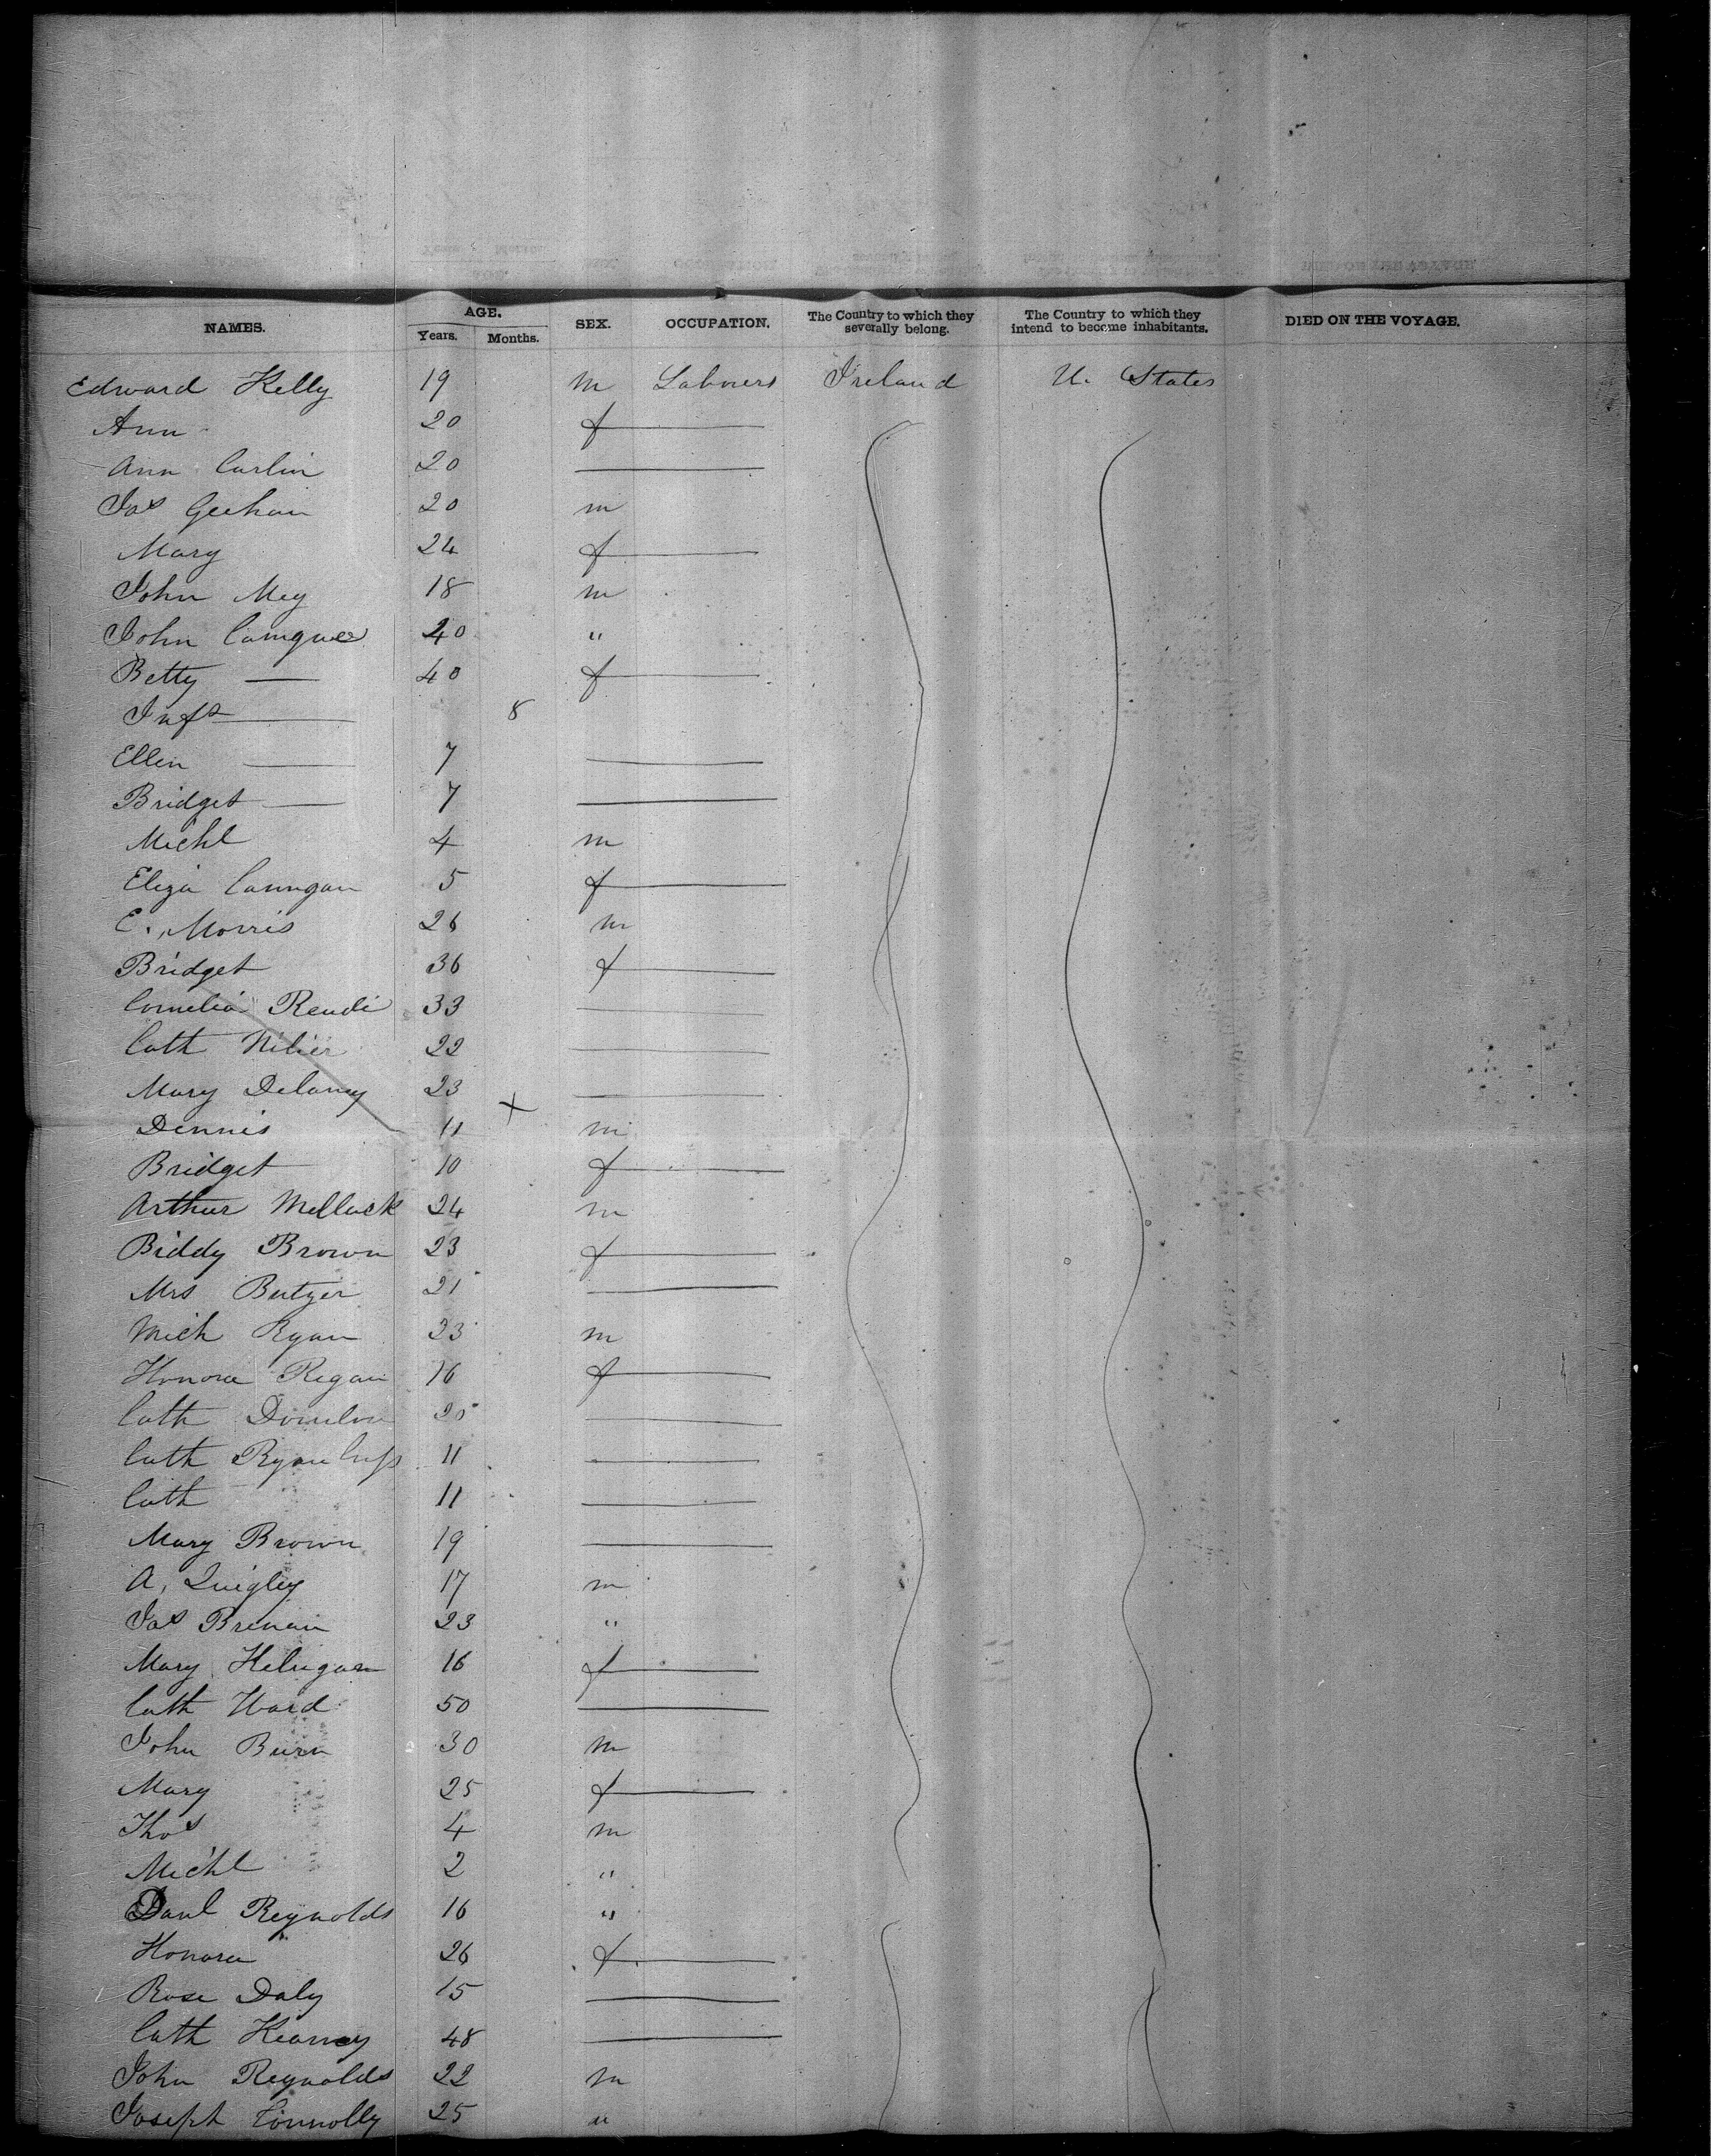 NAMES. AGE. SEX. OCCUPATION. The Country to which they severally belong. The Country to which they intend to become inhabitants. DIED ON THE VOYAGE.
Years. Months.
Edward Kelly 19 m Labourers Ireland U. States
Ann 20 f
Ann Carlin 20
Jas Geehan 20 m
Mary 24 f
John Mey 18 m
John 40 "
Betty — 40 f
Inft — 8
Ellen — 7
Bridget — 7
Michl 4 m
Eliza 5 f
E. Morris 26 m
Bridget 36 f
Cornelia 33
Cath 22
Mary Delaney 23
Dennis 11 m
Bridget 10 f
Arthur 24 m
Biddy Brown 23 f
Mrs Butzer 21
Mich Ryan 23 m
Honora Regan 16 f
Cath 20
Cath Ryan 11
Cath 11
Mary Brown 19
A. Quigley 17 m
Jas Brenan 23 "
Mary 16 f
Cath Ward 50
John Burn 30 m
Mary 25 f
Thos 4 m
Michl 2 "
Danl Reynolds 16 "
Honora 26 f
Rose Daly 15
Cath Kearney 48
John Reynolds 22 m
Joseph Connolly 25 "